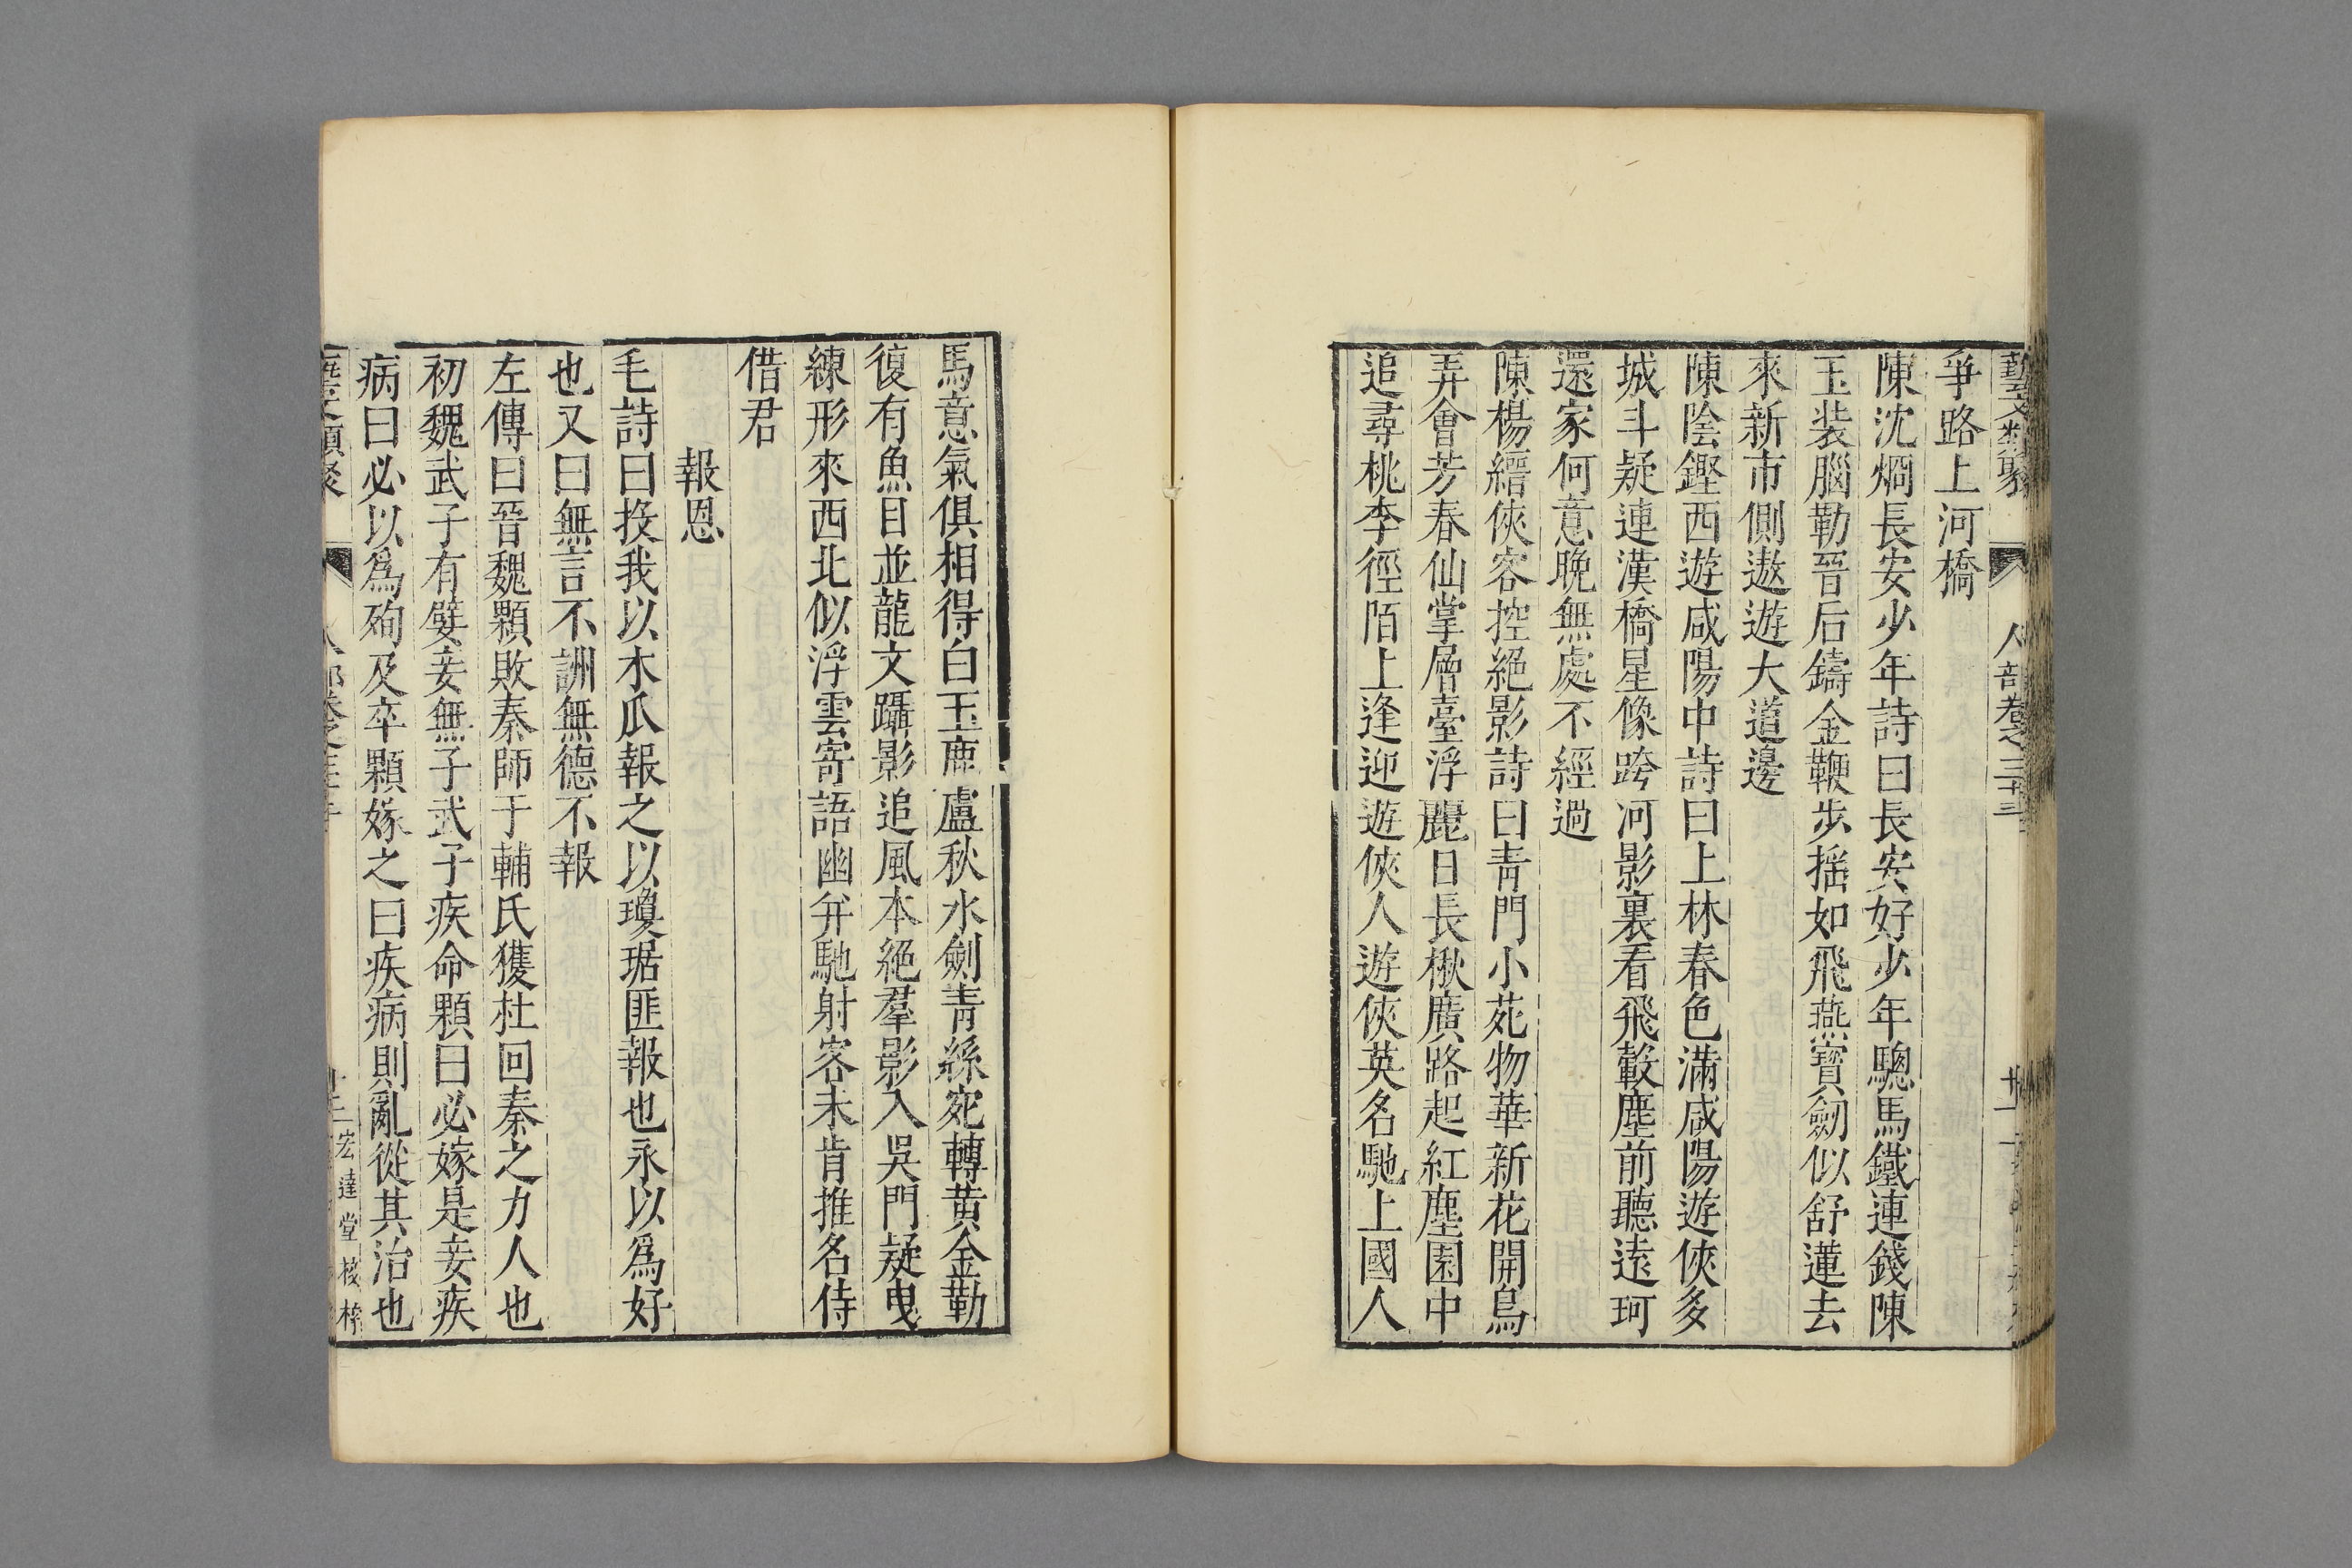 藝文類聚 人部卷之三十三
爭路上河橋
陳沈烱長安少年詩曰長安好少年驄馬鐵連錢陳
王装腦勒晉后鑄金鞭步揺如飛燕寶劒似舒蓮去
來新市側遨遊大道邊
陳陰鏗西遊咸陽中詩曰上林春色滿咸陽遊俠多
城斗疑連漢橋星像跨河影裏看飛轂塵前聽遠珂
還家何意晚無處不經過
陳楊縉俠客控絕影詩曰靑門小苑物華新花開鳥
弄會芳春仙掌層臺浮麗日長楸廣路起紅塵園中
追尋桃李徑陌上逢迎遊俠人遊俠英名馳上國人
馬意氣俱相得白玉鹿盧秋水劍靑絲宛轉黄金勒
復有魚目並龍文躡影追風本絕羣影入吳門疑曳
練形來西北似浮雲寄語幽幷馳射客未肯推名侍
借君
報恩
毛詩曰投我以木瓜報之以瓊琚匪報也永以爲好
也又曰無言不詶無德不報
左傳曰晉魏顆敗秦師于輔氏獲杜回秦之力人也
初魏武子有嬖妾無子武子疾命顆曰必嫁是妾疾
病曰必以爲殉及卒顆嫁之曰疾病則亂從其治也
宏達堂校梓